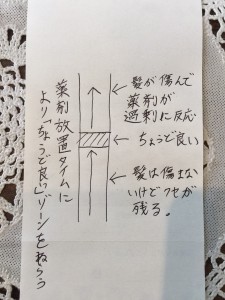 髪が傷んで
薬剤が
過剰に反応
ちょうど良い
髪は傷まな
いけどクセが
残る。
薬剤放置タイムに
より「ちょうど良い」ゾーンをねらう